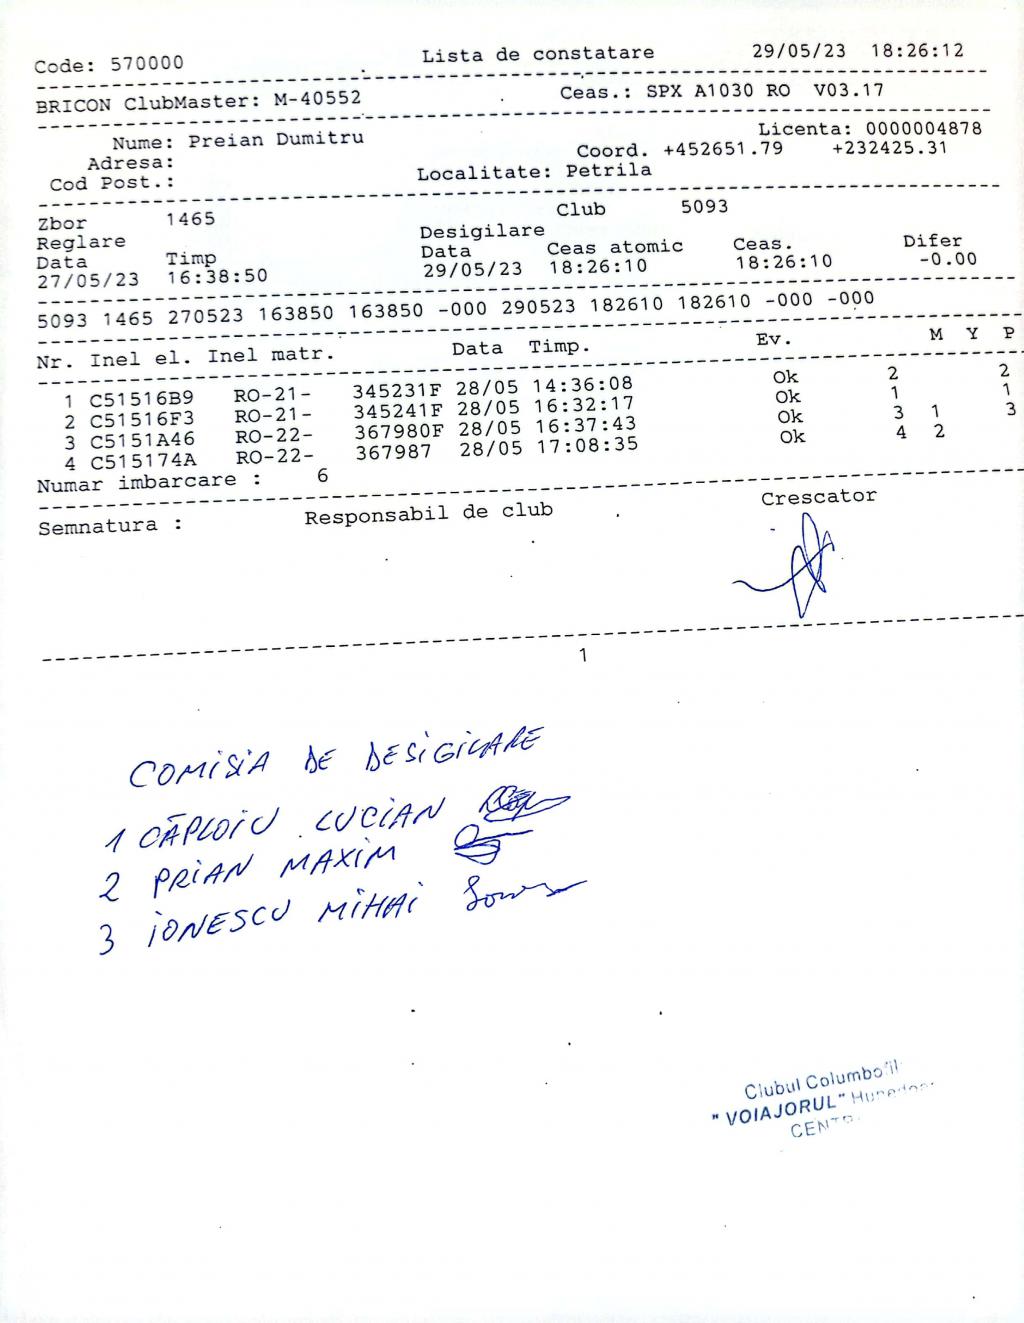 Code: 570000 Lista de constatare 29/05/23 18:26:12
BRICON ClubMaster: M-40552 Ceas.: SPX A1030 RO V03.17
Nume: Preian Dumitru Licenta: 0000004878
Adresa: Coord. +452651.79 +232425.31
Cod Post.: Localitate: Petrila
Zbor 1465 Club 5093
Reglare Desigilare
Data Timp Data Ceas atomic Ceas. Difer
27/05/23 16:38:50 29/05/23 18:26:10 18:26:10 -0.00
5093 1465 270523 163850 163850 -000 290523 182610 182610 -000 -000
Nr. Inel el. Inel matr. Data Timp. Ev. M Y P
1 C51516B9 RO-21- 345231F 28/05 14:36:08 Ok 2 2
2 C51516F3 RO-21- 345241F 28/05 16:32:17 Ok 1 1
3 C5151A46 RO-22- 367980F 28/05 16:37:43 Ok 3 1 3
4 C515174A RO-22- 367987 28/05 17:08:35 Ok 4 2
Numar imbarcare : 6
Semnatura : Responsabil de club Crescator
1
COMISIA DE DESIGILARE
1 CĂPLOIU LUCIAN
2 PRIAN MAXIM
3 IONESCU MIHAI
Clubul Columbofil
"VOIAJORUL"